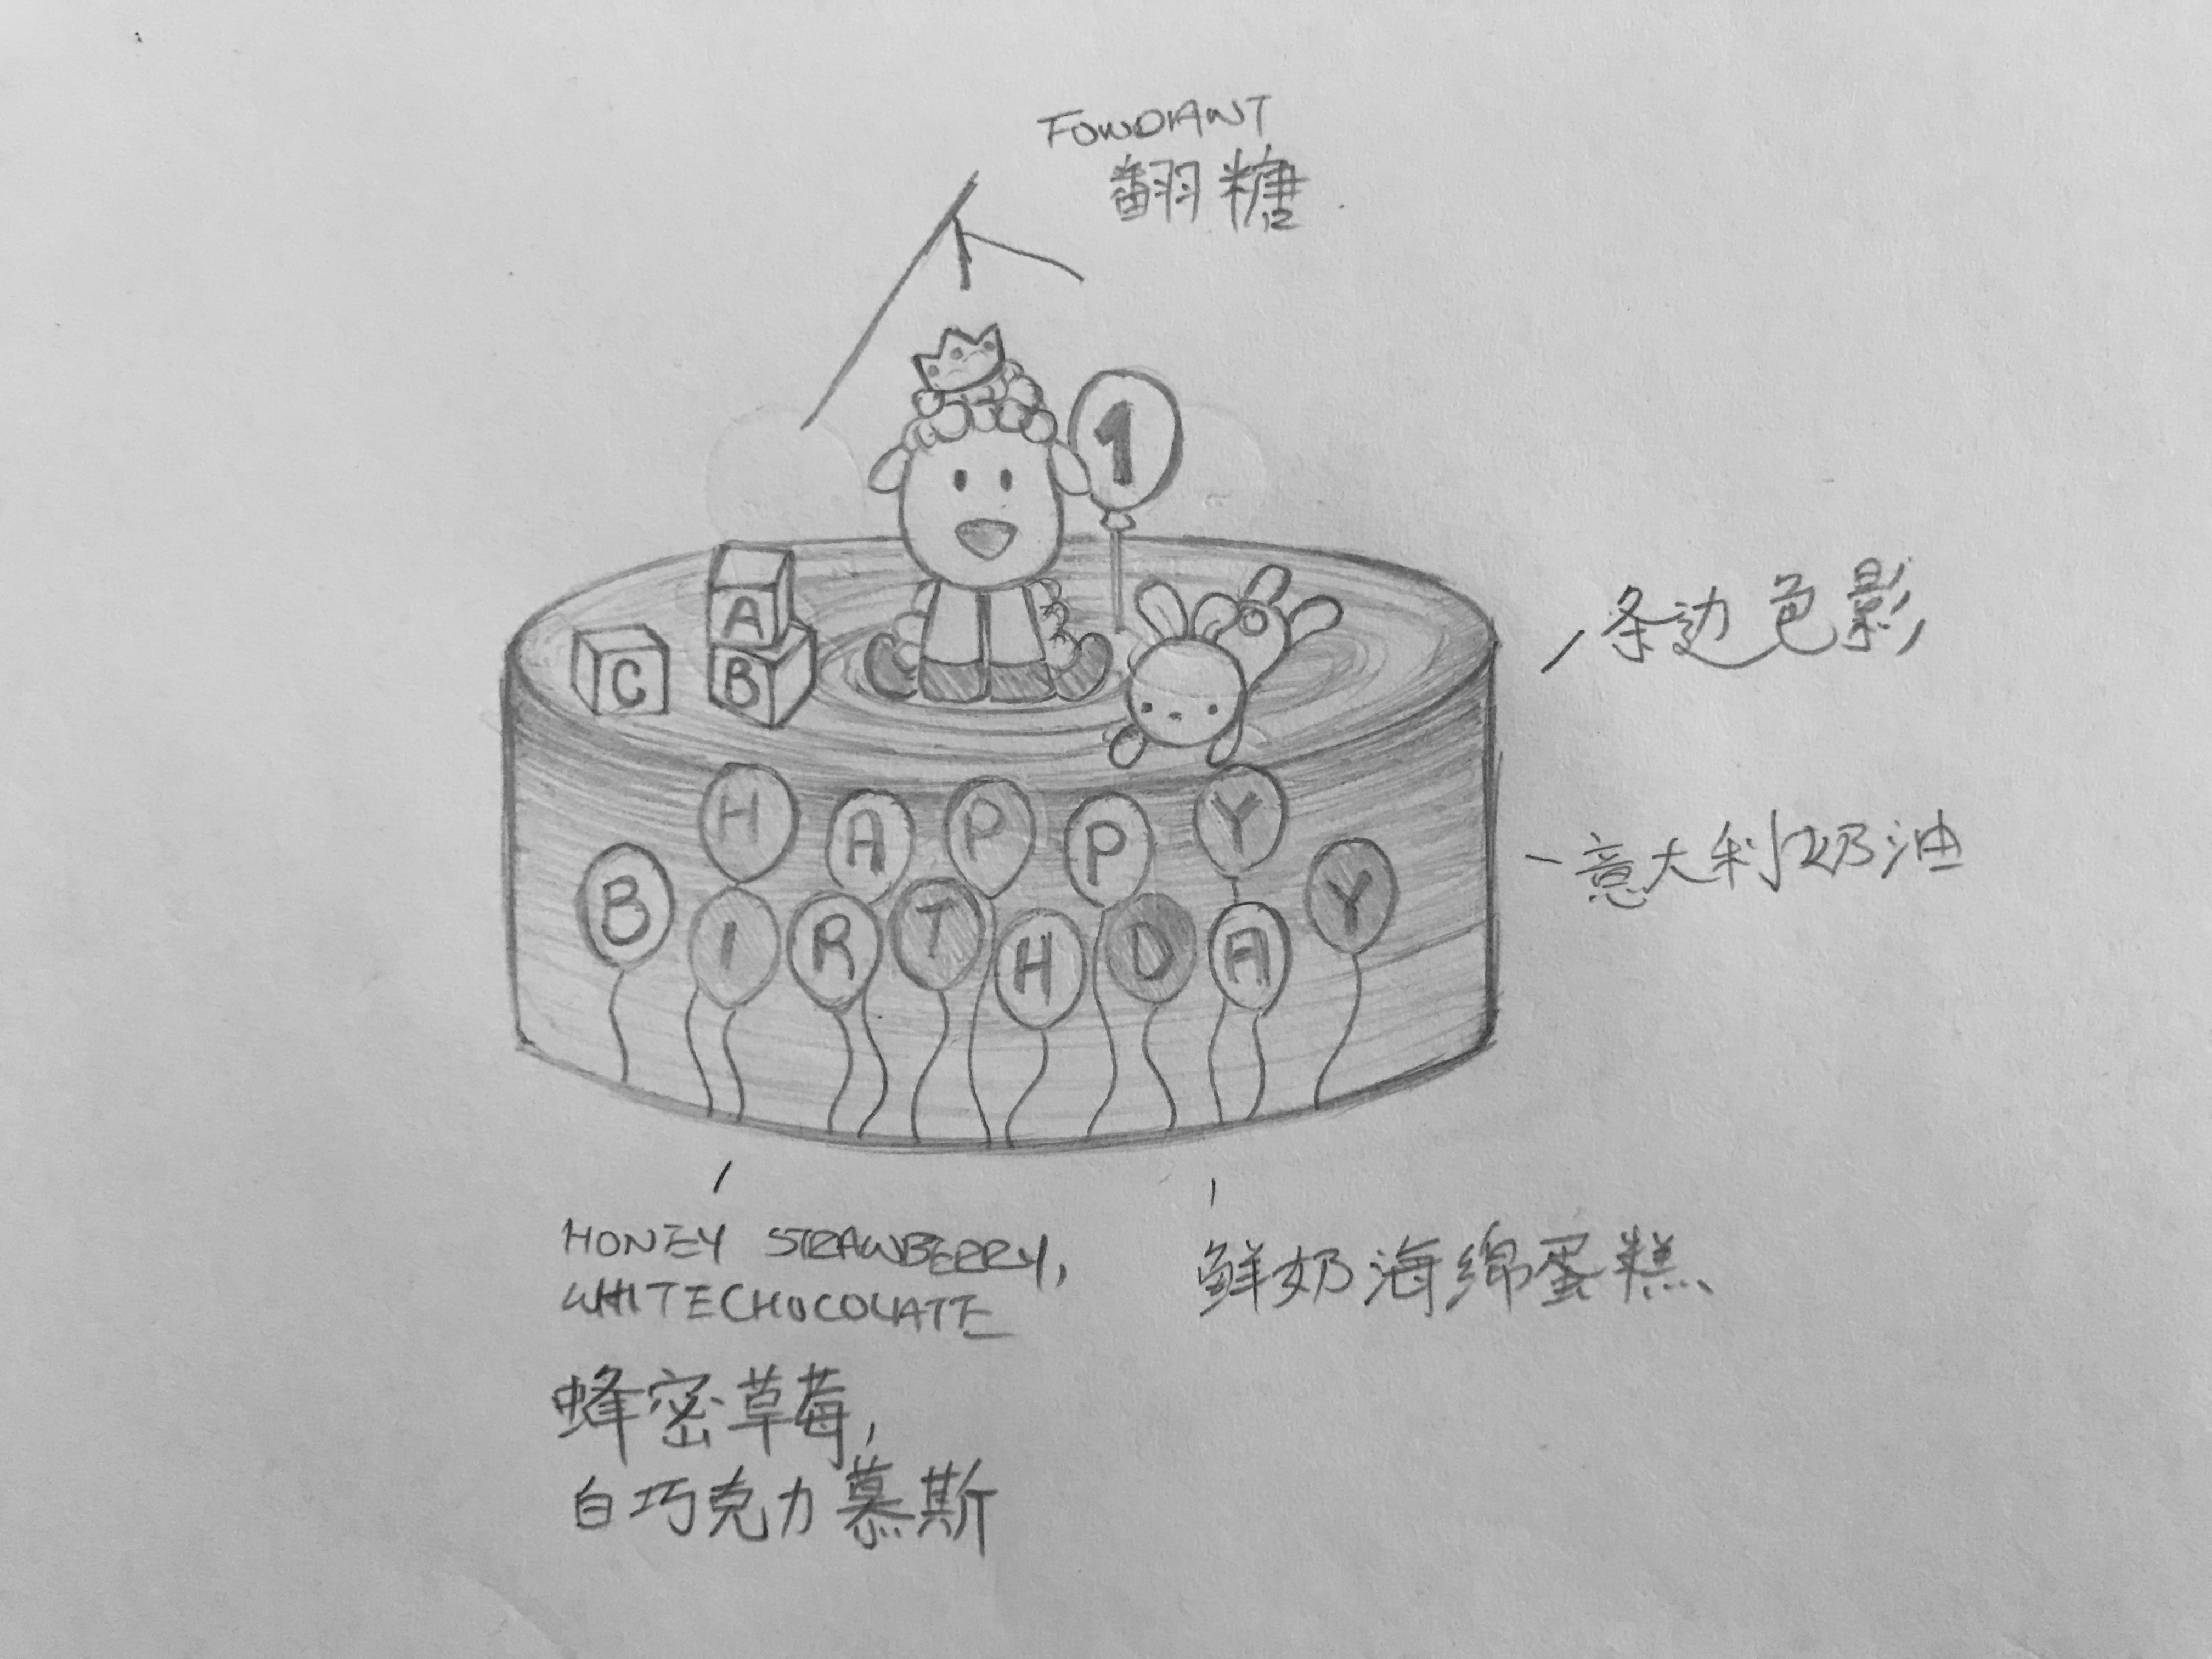 FONDIANT
翻糖
1
A
C
B
条边色影
意大利奶油
HAPPY
BIRTHDAY
HONEY STRAWBERRY,
WHITECHOCOLATE
蜂密草莓,
白巧克力慕斯
鲜奶海绵蛋糕